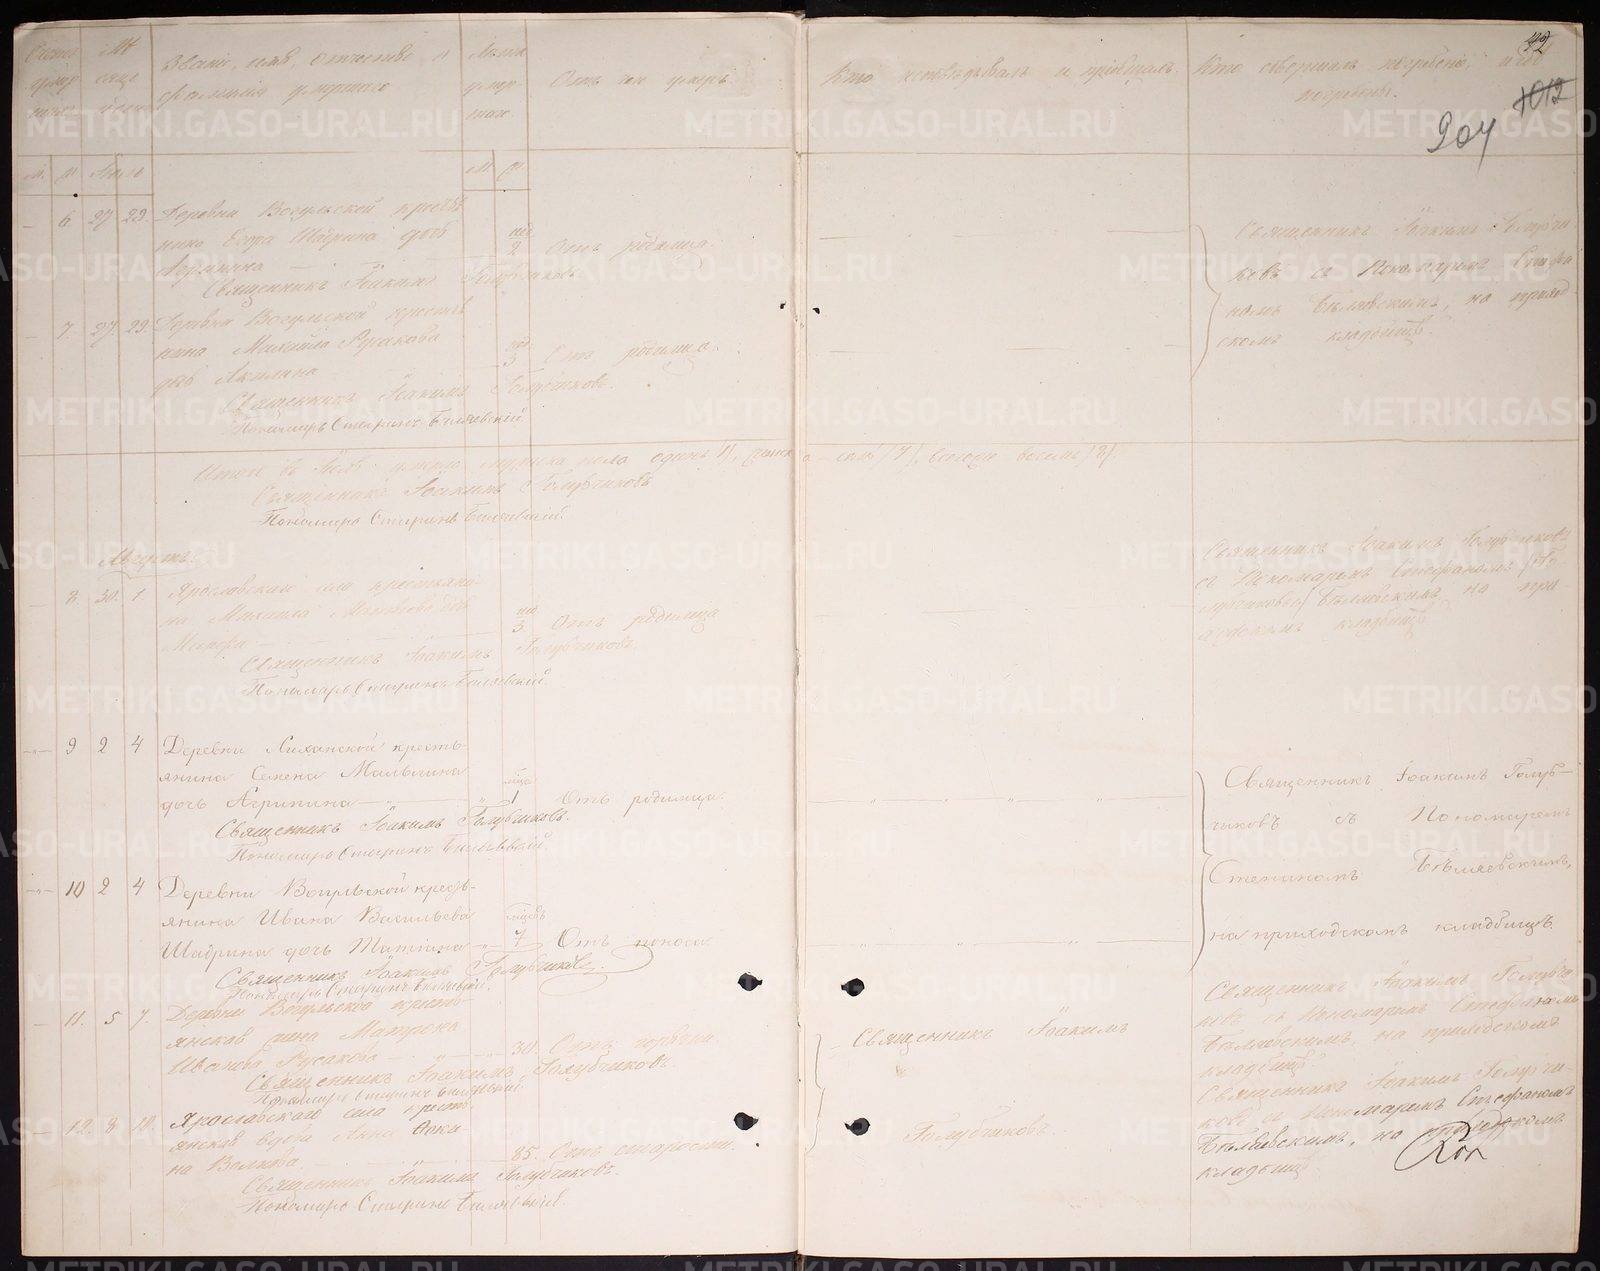 42
1012
904
Счетъ умер
Мѣ сяцъ
Званіе, имя, отчество и
фамилія умершаго
Лѣта умер шаго
Отъ чего умеръ
Кто исповѣдывалъ и пріобщалъ
Кто совершалъ погребеніе, и гдѣ
погребены.
М. Ж. Іюль
М. Ж.
6 27 29 Деревни Вогульской крестья
нина Егора Шабрина дочь
нед 2 Отъ родимца
Священникъ Іоакимъ Голубчиковъ
Священникъ Іоакимъ Голубчи
ковъ съ Пономаремъ Стефа
номъ Бѣляевскимъ, на приход
скомъ кладбищѣ.
7. 27 29. Деревни Вогульской крестья
нина Михаила Русакова
дочь Акилина
3 Отъ родимца.
Священникъ Іоакимъ Голубчиковъ.
Пономарь Стефанъ Бѣляевскій
Итого въ Іюлѣ умерло мужеска пола одинъ /1/, женска – семь /7/, всего восемь /8/
Священникъ Іоакимъ Голубчиковъ
Пономарь Стефанъ Бѣляевскій.
Августъ.
8 30. 1. Ярославскаго села крестьяни
на Михаила дочь
Марѳа
нед 3. Отъ родимца
Священникъ Іоакимъ Голубчиковъ.
Пономарь Стефанъ Бѣляевскій.
Священникъ Іоакимъ Голубчиковъ
съ Пономаремъ Стефаномъ /Го
лубчиковъ/ Бѣляевскимъ на при
ходскомъ кладбищѣ
9 2 4 Деревни Лиханской кресть-
янина Семена Малыгина
дочь Агрипина
1 Отъ родимца.
Священникъ Іоакимъ Голубчиковъ.
Пономарь Стефанъ Бѣляевскій.
Священникъ Іоакимъ Голуб-
чиковъ съ Пономаремъ
Степаномъ Бѣляевскимъ,
на приходскомъ кладбищѣ.
10 2 4 Деревни Вогульской кресть-
янина Ивана Васильева
Шабрина дочь Татіана
мѣсяцъ 7 Отъ поноса
Священникъ Іоакимъ Голубчиковъ.
Пономарь Стефанъ Бѣляевскій.
11. 5 7. Деревни Вогульской кресть-
янская жена Матрона
Иванова Русакова
30. Отъ горячки.
Священникъ Іоакимъ Голубчиковъ.
Пономарь Стефанъ Бѣляевскій.
Священникъ Іоакимъ
Голубчиковъ.
Священникъ Іоакимъ Голубчи
ковъ съ Пономаремъ Стефаномъ
Бѣляевскимъ, на приходскомъ
кладбищѣ
12 8 10. Ярославскаго села кресть
янская вдова Анна Фоки-
на Волкова
85. Отъ старости.
Священникъ Іоакимъ Голубчиковъ.
Пономарь Стефанъ Бѣляевскій.
Священникъ Іоакимъ Голубчи-
ковъ съ Пономаремъ Стефаномъ
Бѣляевскимъ, на приходскомъ
кладбищѣ
METRIKI.GASO-URAL.RU